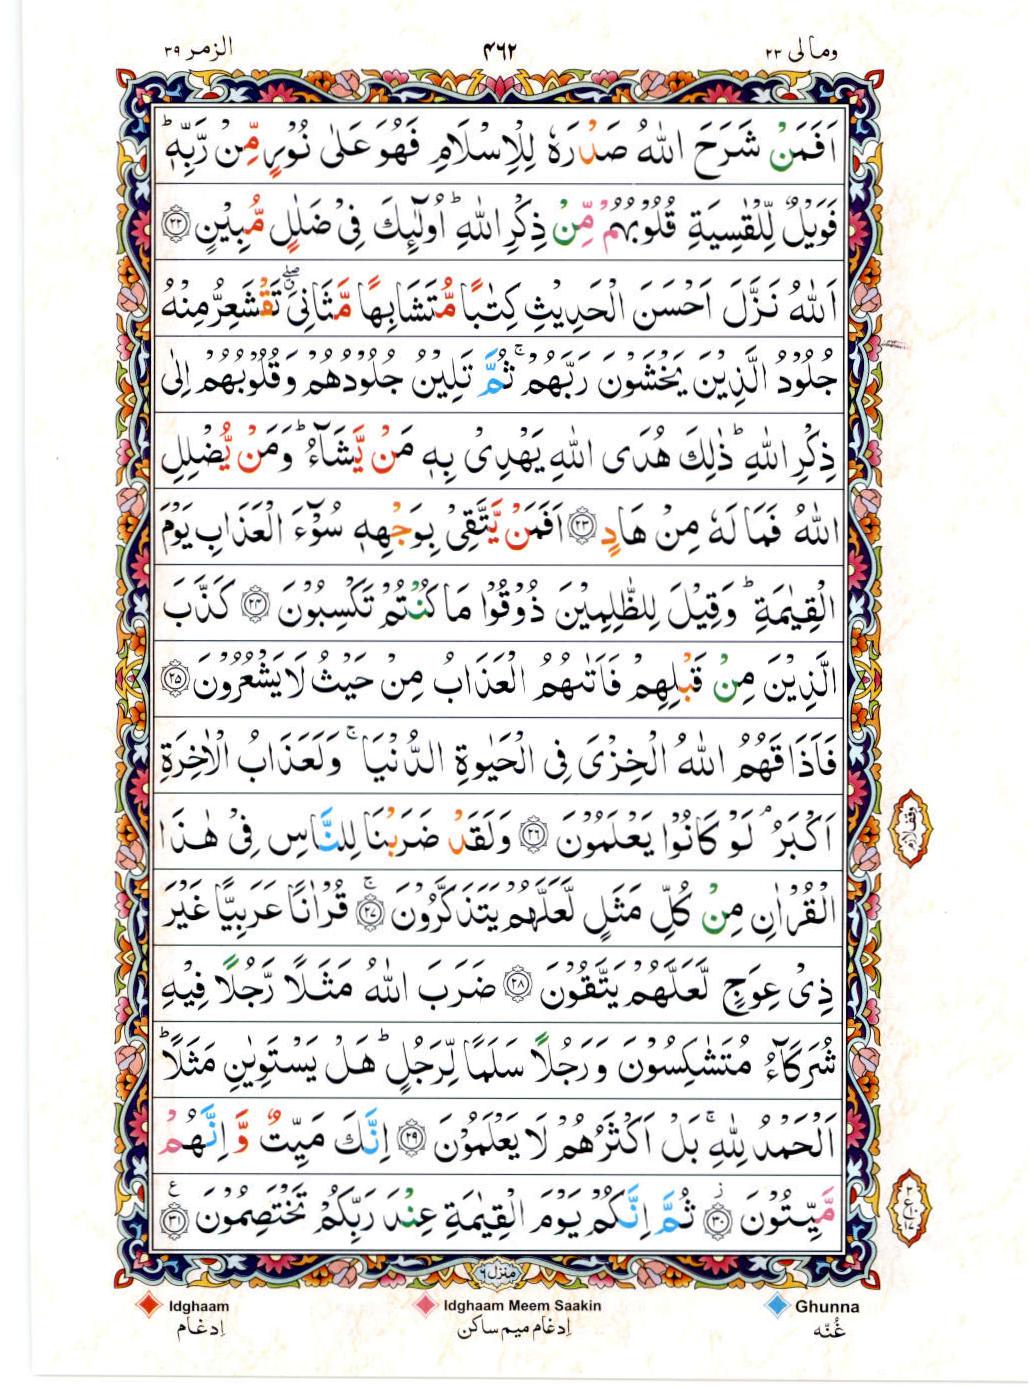 الزمر ٣٩ ۴۶۲ ومالی ٢٣
اَفَمَنْ شَرَحَ اللّٰهُ صَدْرَهٗ لِلْاِسْلَامِ فَهُوَ عَلٰى نُوْرٍ مِّنْ رَّبِّهٖ ؕ
فَوَيْلٌ لِّلْقٰسِيَةِ قُلُوْبُهُمْ مِّنْ ذِكْرِ اللّٰهِ ؕ اُولٰٓئِكَ فِىْ ضَلٰلٍ مُّبِيْنٍ ﴿٢٢﴾
اَللّٰهُ نَزَّلَ اَحْسَنَ الْحَدِيْثِ كِتٰبًا مُّتَشَابِهًا مَّثَانِىَ ۖ تَقْشَعِرُّ مِنْهُ
جُلُوْدُ الَّذِيْنَ يَخْشَوْنَ رَبَّهُمْ ۚ ثُمَّ تَلِيْنُ جُلُوْدُهُمْ وَقُلُوْبُهُمْ اِلٰى
ذِكْرِ اللّٰهِ ؕ ذٰلِكَ هُدَى اللّٰهِ يَهْدِىْ بِهٖ مَنْ يَّشَآءُ ؕ وَمَنْ يُّضْلِلِ
اللّٰهُ فَمَا لَهٗ مِنْ هَادٍ ﴿٢٣﴾ اَفَمَنْ يَّتَّقِىْ بِوَجْهِهٖ سُوْٓءَ الْعَذَابِ يَوْمَ
الْقِيٰمَةِ ؕ وَقِيْلَ لِلظّٰلِمِيْنَ ذُوْقُوْا مَا كُنْتُمْ تَكْسِبُوْنَ ﴿٢۴﴾ كَذَّبَ
الَّذِيْنَ مِنْ قَبْلِهِمْ فَاَتٰىهُمُ الْعَذَابُ مِنْ حَيْثُ لَا يَشْعُرُوْنَ ﴿٢۵﴾
فَاَذَاقَهُمُ اللّٰهُ الْخِزْىَ فِى الْحَيٰوةِ الدُّنْيَا ۚ وَلَعَذَابُ الْاٰخِرَةِ
اَكْبَرُ ۘ لَوْ كَانُوْا يَعْلَمُوْنَ ﴿٢۶﴾ وَلَقَدْ ضَرَبْنَا لِلنَّاسِ فِىْ هٰذَا
الْقُرْاٰنِ مِنْ كُلِّ مَثَلٍ لَّعَلَّهُمْ يَتَذَكَّرُوْنَ ۚ ﴿٢٧﴾ قُرْاٰنًا عَرَبِيًّا غَيْرَ
ذِىْ عِوَجٍ لَّعَلَّهُمْ يَتَّقُوْنَ ﴿٢٨﴾ ضَرَبَ اللّٰهُ مَثَلًا رَّجُلًا فِيْهِ
شُرَكَآءُ مُتَشٰكِسُوْنَ وَرَجُلًا سَلَمًا لِّرَجُلٍ ؕ هَلْ يَسْتَوِيٰنِ مَثَلًا ؕ
اَلْحَمْدُ لِلّٰهِ ۚ بَلْ اَكْثَرُهُمْ لَا يَعْلَمُوْنَ ﴿٢٩﴾ اِنَّكَ مَيِّتٌ وَّاِنَّهُمْ
مَّيِّتُوْنَ ﴿٣٠﴾ ثُمَّ اِنَّكُمْ يَوْمَ الْقِيٰمَةِ عِنْدَ رَبِّكُمْ تَخْتَصِمُوْنَ ﴿٣١﴾ ع
وقف لازم
منزل ۶
Idghaam Idghaam Meem Saakin Ghunna
اِدغام اِدغام میم ساکن غُنّه